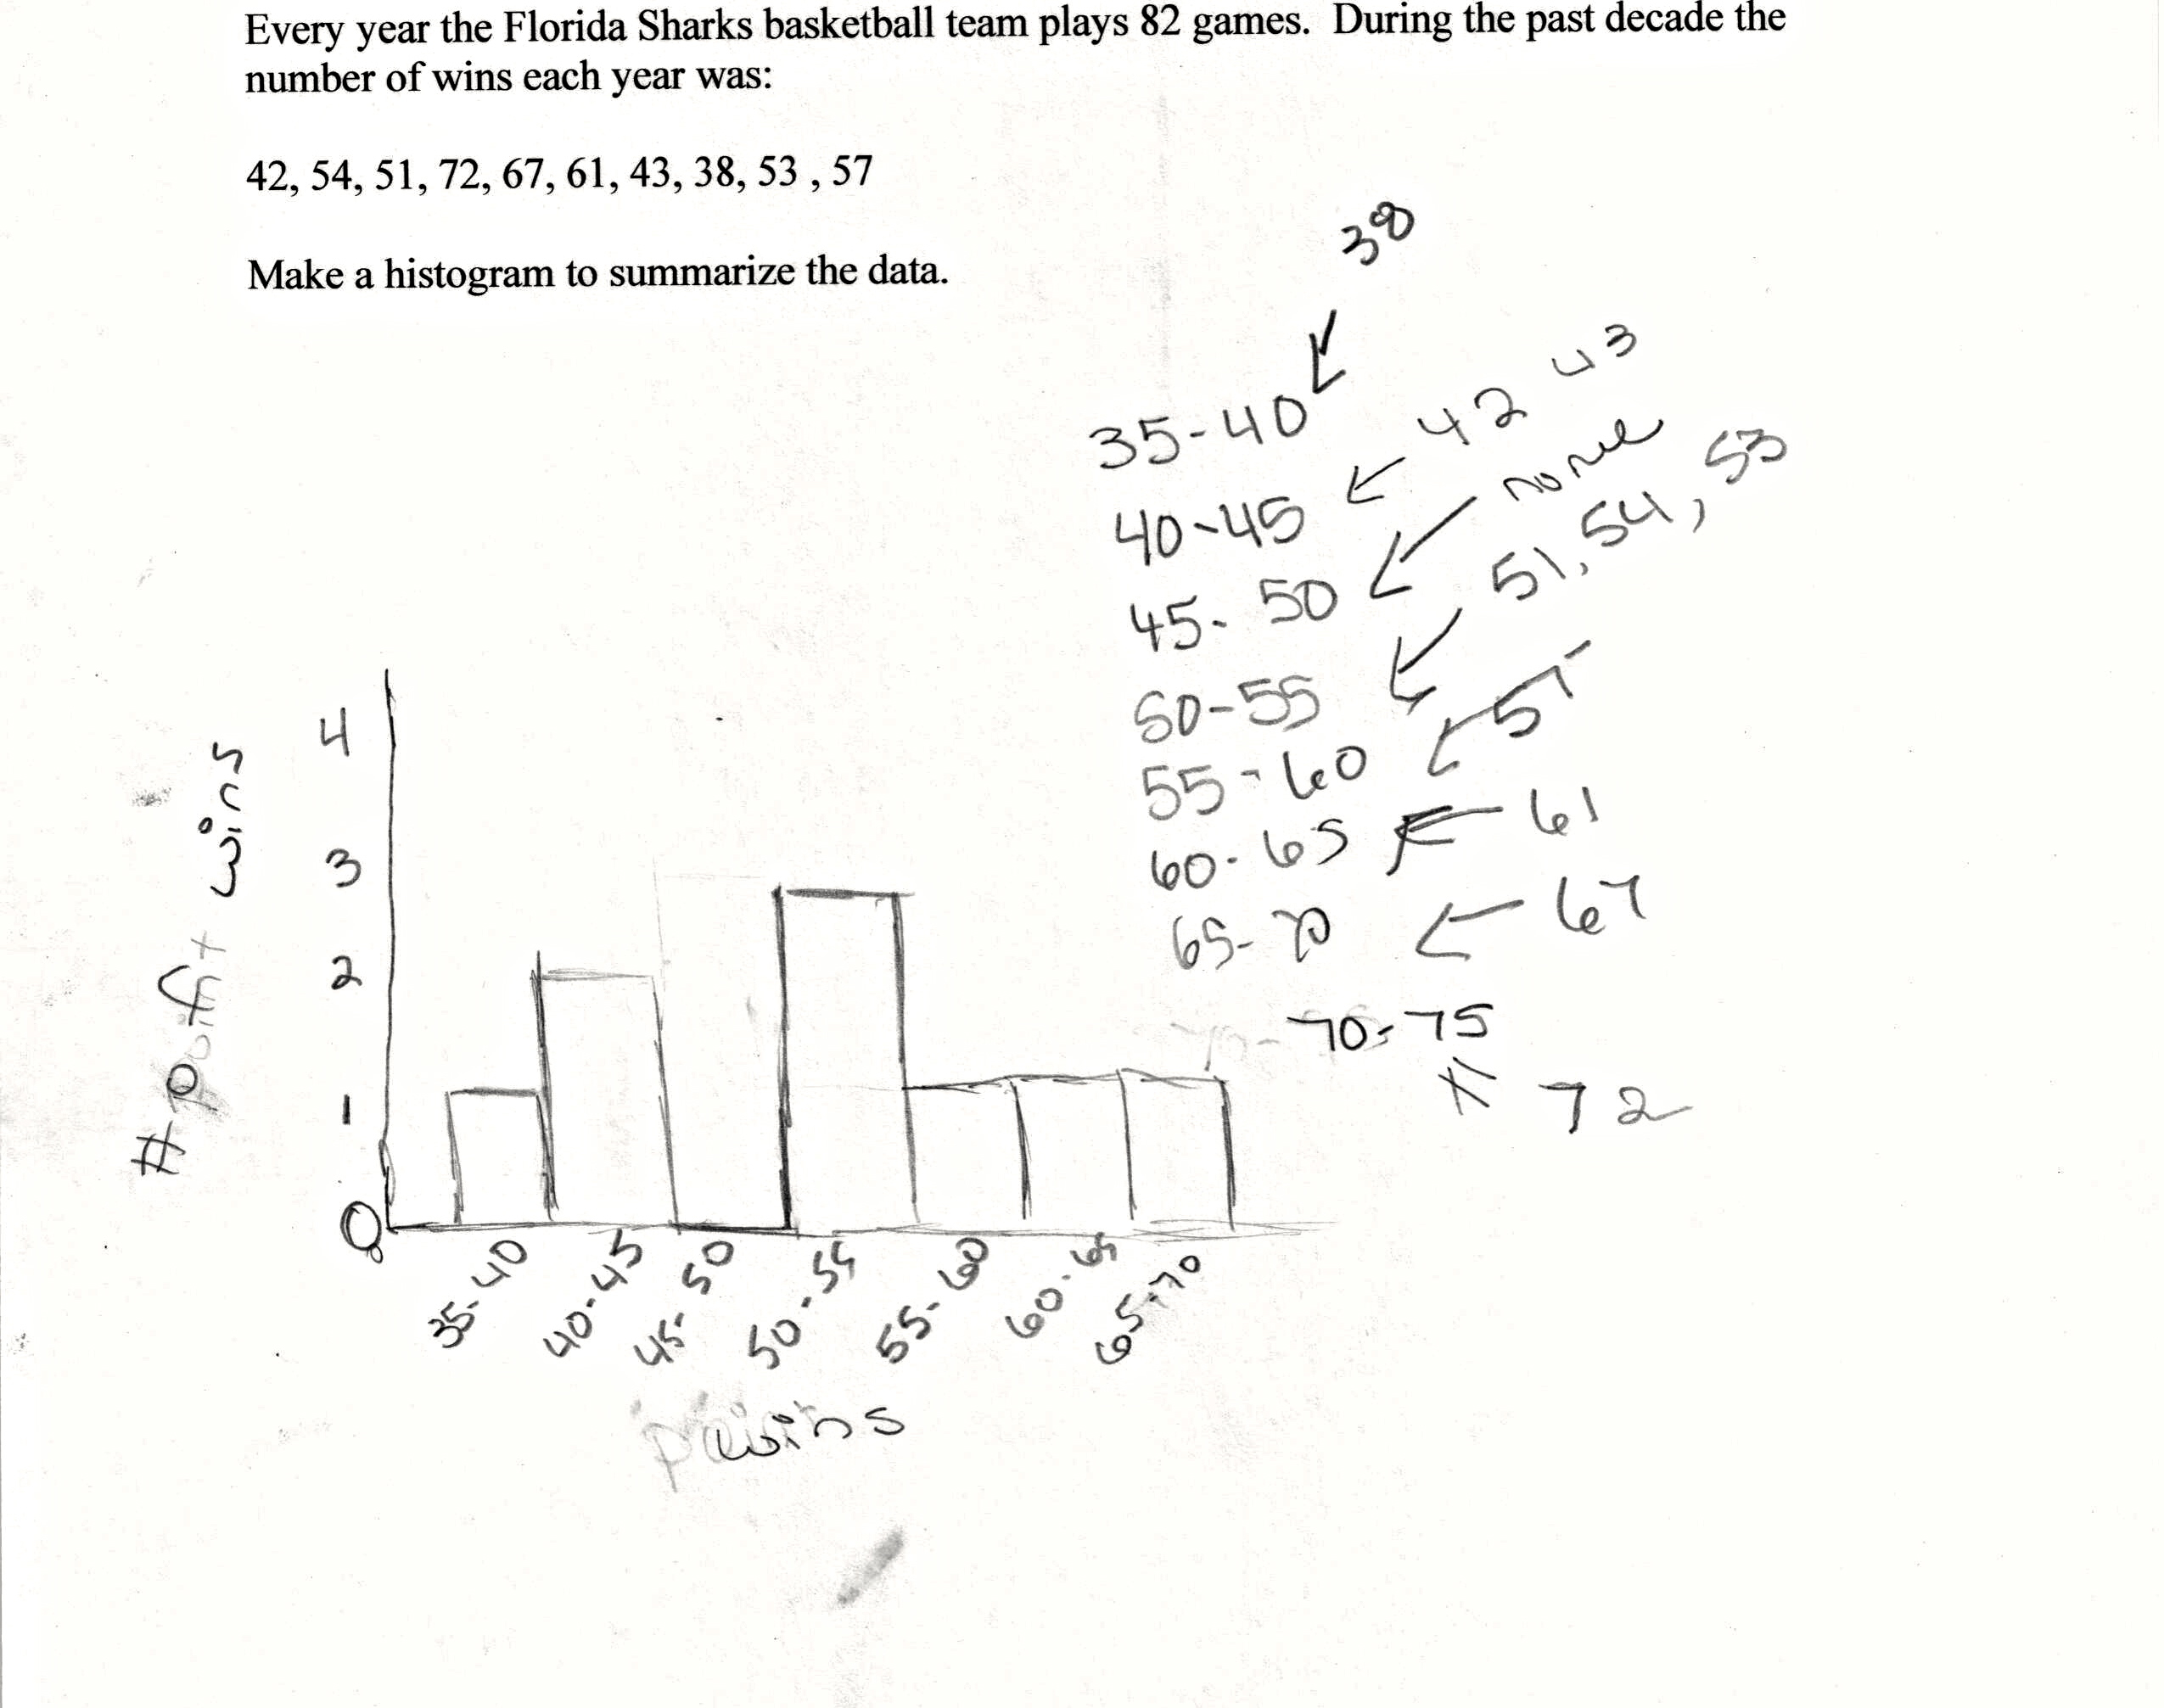 Every year the Florida Sharks basketball team plays 82 games. During the past decade the
number of wins each year was:
42, 54, 51, 72, 67, 61, 43, 38, 53 , 57
Make a histogram to summarize the data.
38
35-40
42 43
40-45
none
45-50
51, 54, 53
50-55
57
55-60
60-65 61
65-70 67
70-75
72
4
3
2
1
0
# of wins
35-40
40-45
45-50
50-55
55-60
60-65
65-70
wins